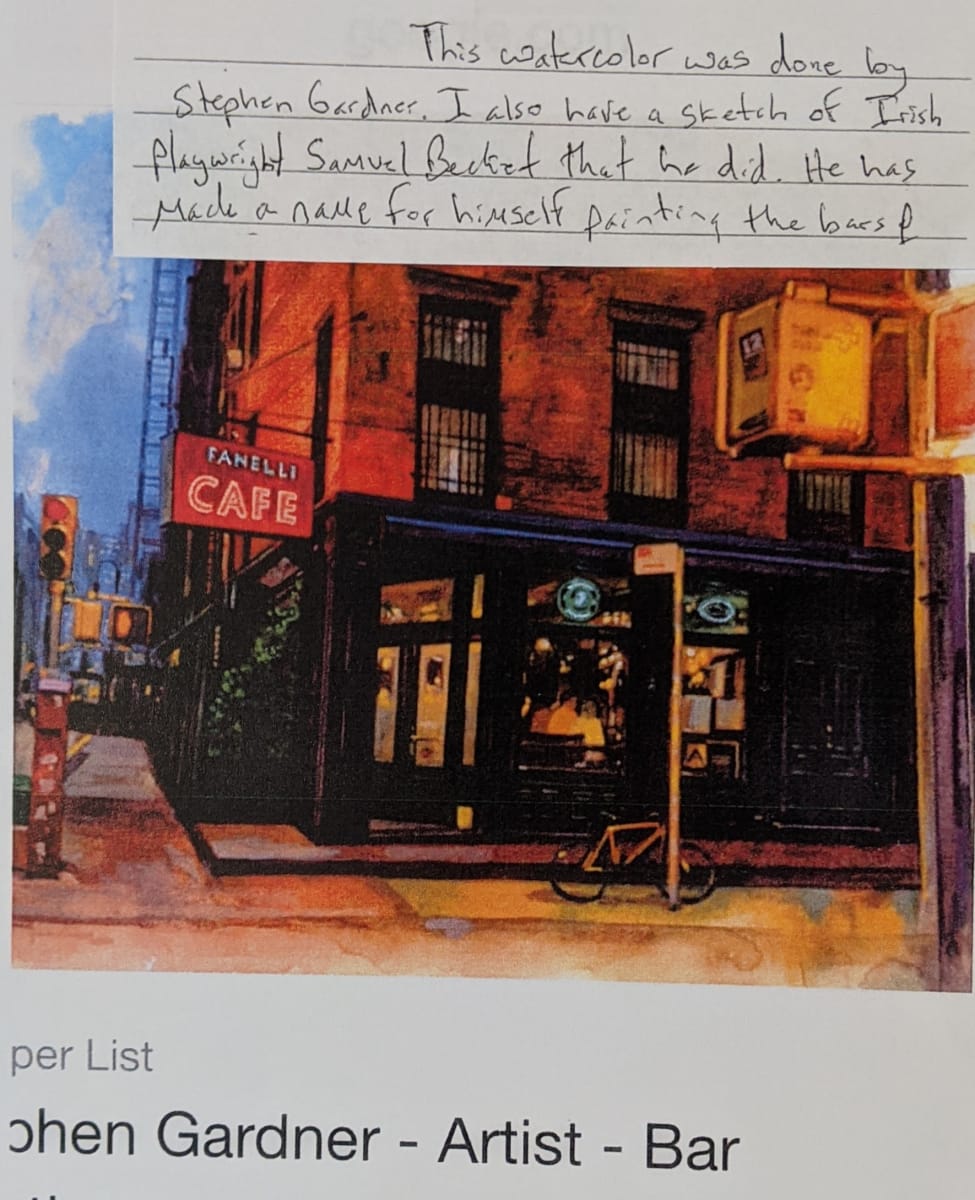 This watercolor was done by
Stephen Gardner. I also have a sketch of Irish
Playwright Samuel Becket that he did. He has
Made a name for himself painting the bars &
FANELLI
CAFE
per List
phen Gardner - Artist - Bar